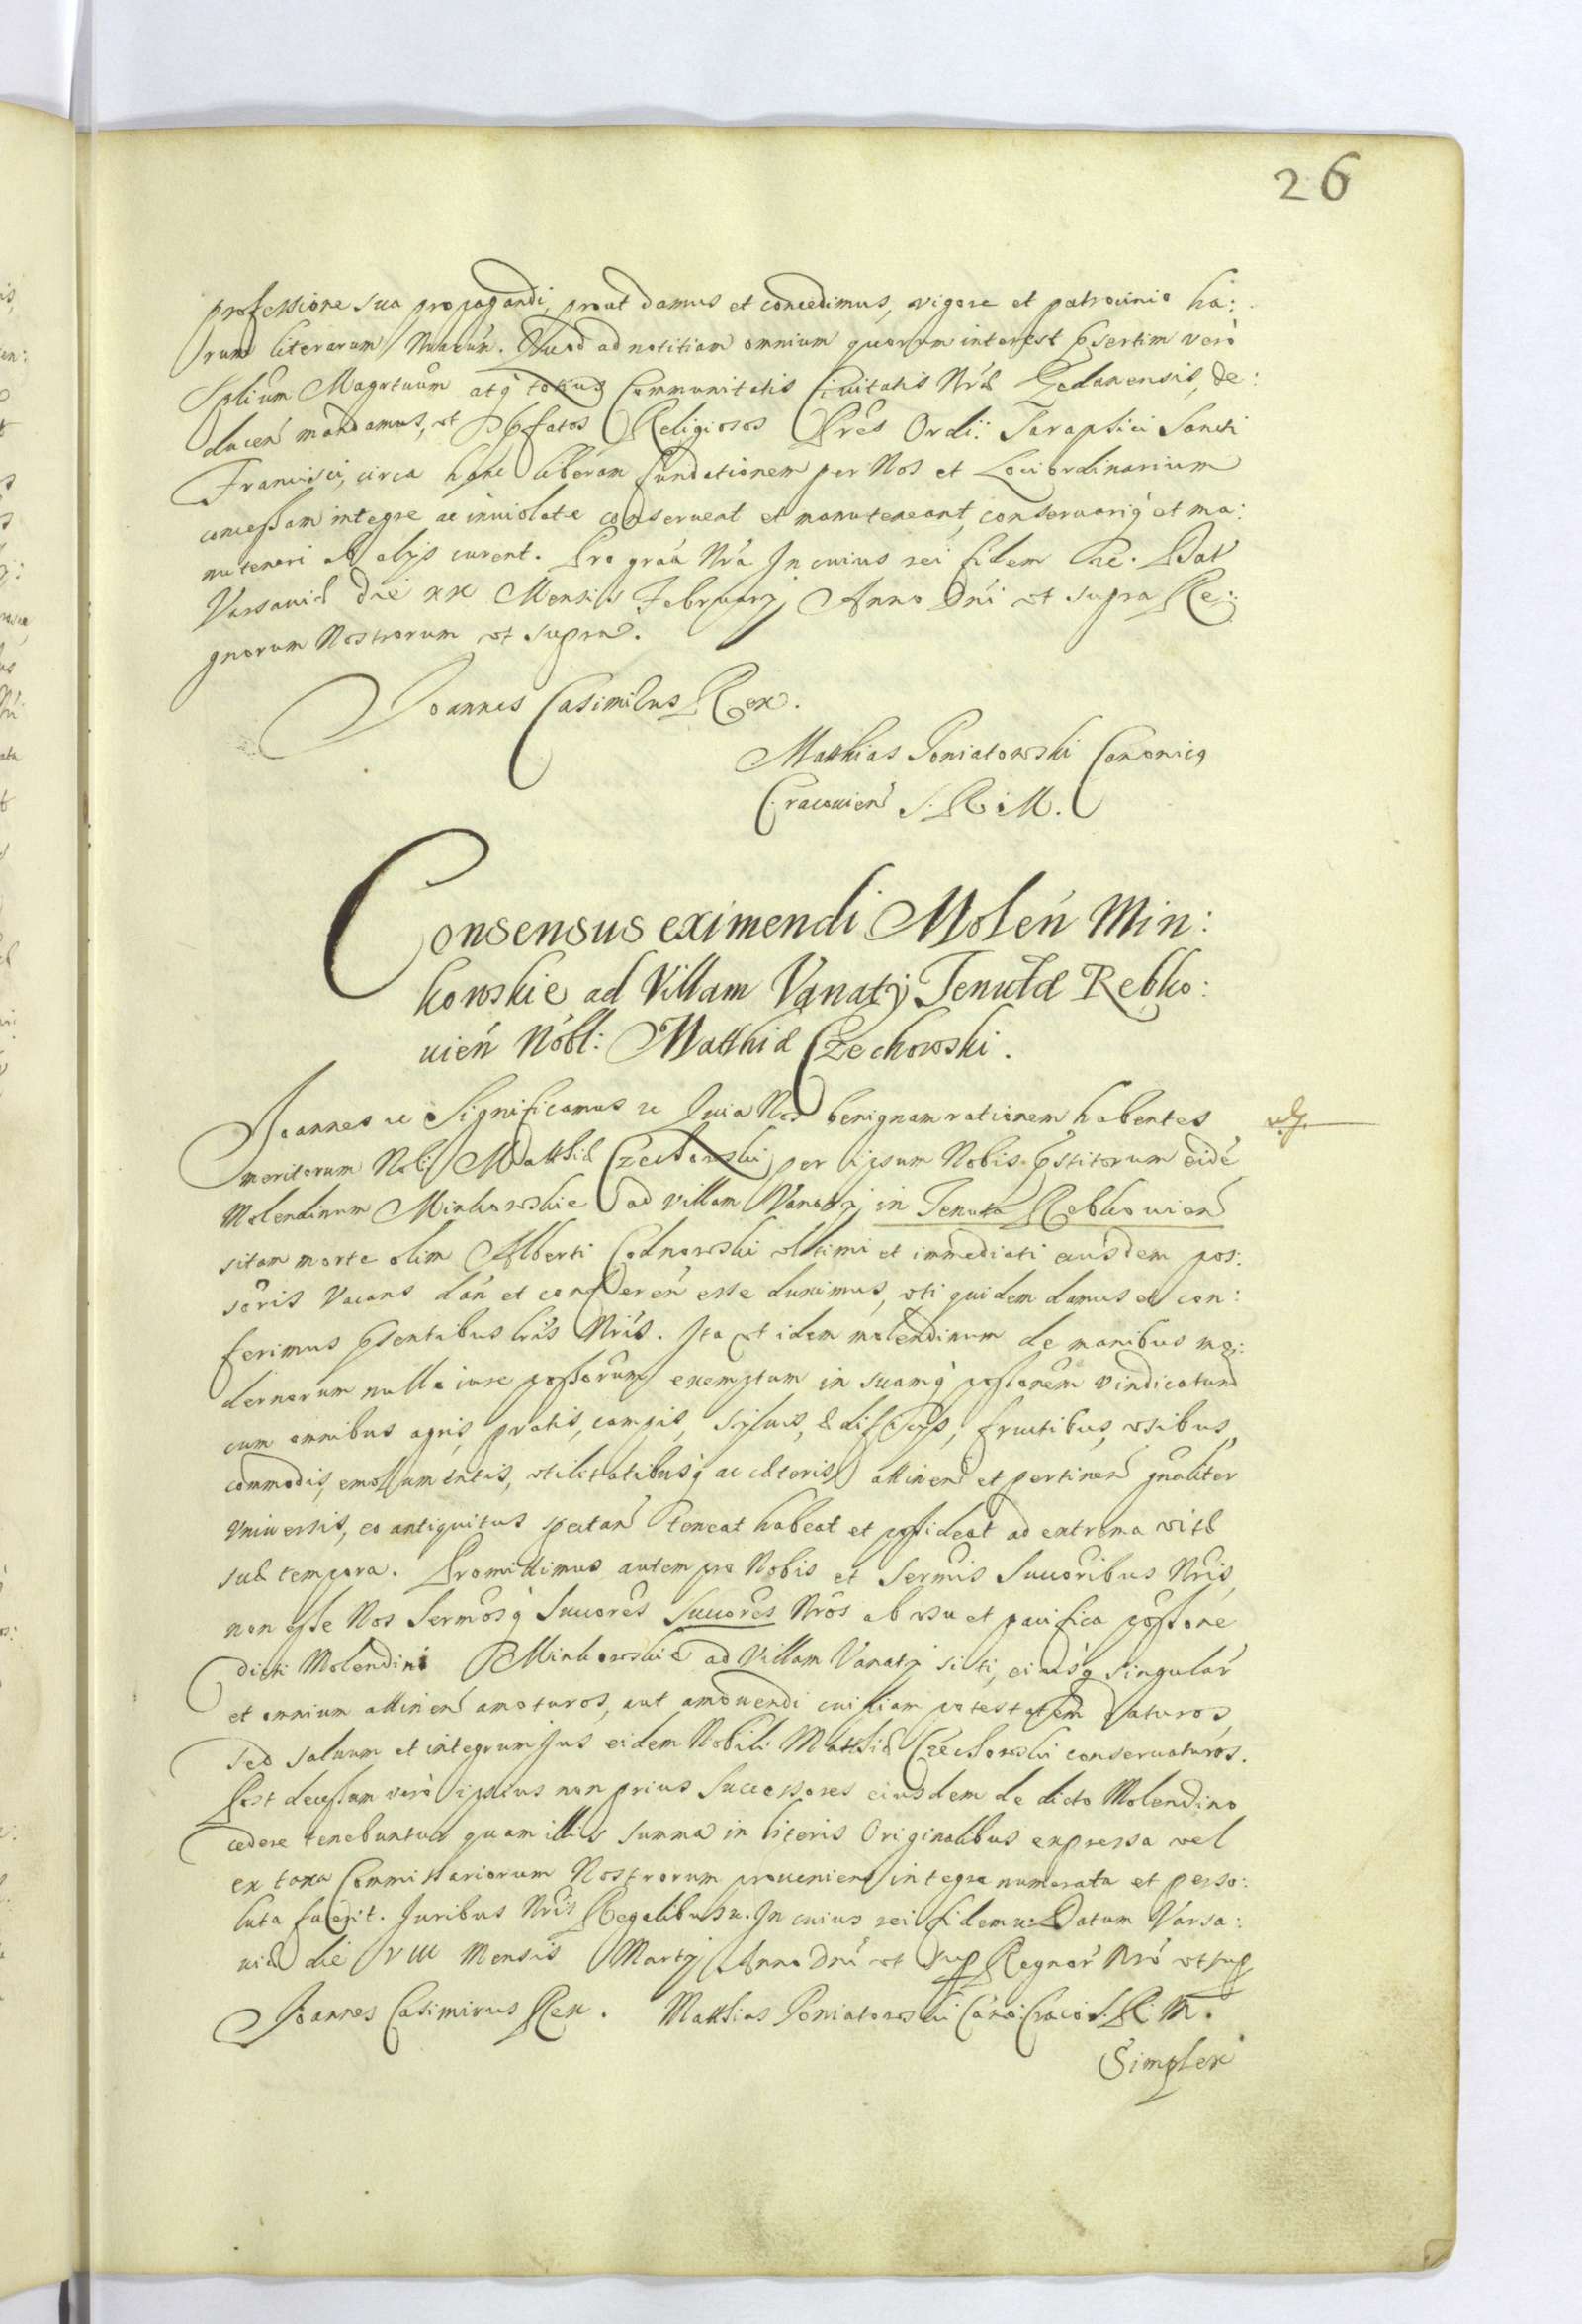 26
professione sua propagandi, prout damus et concedimus, vigore et patrocinio ha:
rum literarum Nrarũm. Quod ad notitiam omnium quorum interest p̃sertim verò
Splium Magrtuũm atq̃ totius Communitatis Civitatis Nr̃æ Gedanensis, de:
ducen̄ mandamus, ut p̃fatos Religiosos Pr̃es Ordi: Saraphici Sancti
Francisci, circa hanc liberam fundationem per Nos et Loci ordinarium
concessam integre ac inviolate conservent et manuteneant, conservariq̃ et ma:
nuteneri ab alijs curent. Pro gr̃aa Nr̃a In cuius rei fidem etc. Dat
Varsaviæ die xx Mensis Februarij Anno Dñi ut supra Re:
gnorum Nostrorum ut supra.
Joannes Casimirus Rex.
Matthias Poniatowski Canonicq
Cracovien̄ S. R. M.
Consensus eximendi Molen̄ Min:
kowskie ad Villam Vanaty Tenutæ Rebko:
vien̄ Nobl: Matthiæ Czechowski.
Joannes etc Significamus etc Quia Nos benignam rationem habentes
meritorum Nobi Matthiæ Czechowski per ipsum Nobis p̃stitorum eidẽ
Molendinum Minkowskie ad villam Vanaty in Tenuta Rebkovien̄
sitam morte olim Alberti Codnowski ultimi et immediati eiusdem pos:
soris vacans dan̄ et conferen̄ esse duximus, uti quidem damus et con:
ferimus p̃sentibus lr̃is Nr̃is. Ita ut idem molendinum de manibus mo:
dernorum nullo iure possorum exemptum in suamq̃ possonem vindicatum
cum omnibus agris, pratis, campis, sylvis, ædificijs, fructibus, usibus,
commodis, emolumentis, utilitatibusq̃ ac cæteris attinen̄ et pertinen̄ gñaliter
Universis, eo antiquitus spectan̄ teneat habeat et possideat ad extrema vitæ
suæ tempora. Promittimus autem pro Nobis et Serm̃is Succoribus Nr̃is,
non esse Nos Serm̃osq̃ Succores Succores Nr̃os ab usu et pacifica possone
dicti Molendini Minkowskie ad Villam Vanaty siti, eiusq̃ singular̃
et omnium attinen̄ amoturos, aut amovendi cuipiam potestatem daturos,
sed salvum et integrum Jus eidem Nobili Matthiæ Czechowski conservaturos.
Post decessum verò ipsius non prius Successores eiusdem de dicto Molendino
cedere tenebuntur quam illis summa in literis Originalibus expressa vel
ex taxa Commissariorum Nostrorum proveniens integre numerata et perso:
luta fuerit. Juribus Nr̃is Regalibus etc. In cuius rei fidem etc: Datum Varsa:
viæ die VIII Mensis Martij Anno Dñi ut sup Regnor̃ Nr̃o ut sup
Joannes Casimirus Rex. Matthias Poniatowski Cano: Craco S. R. M.
Simplex